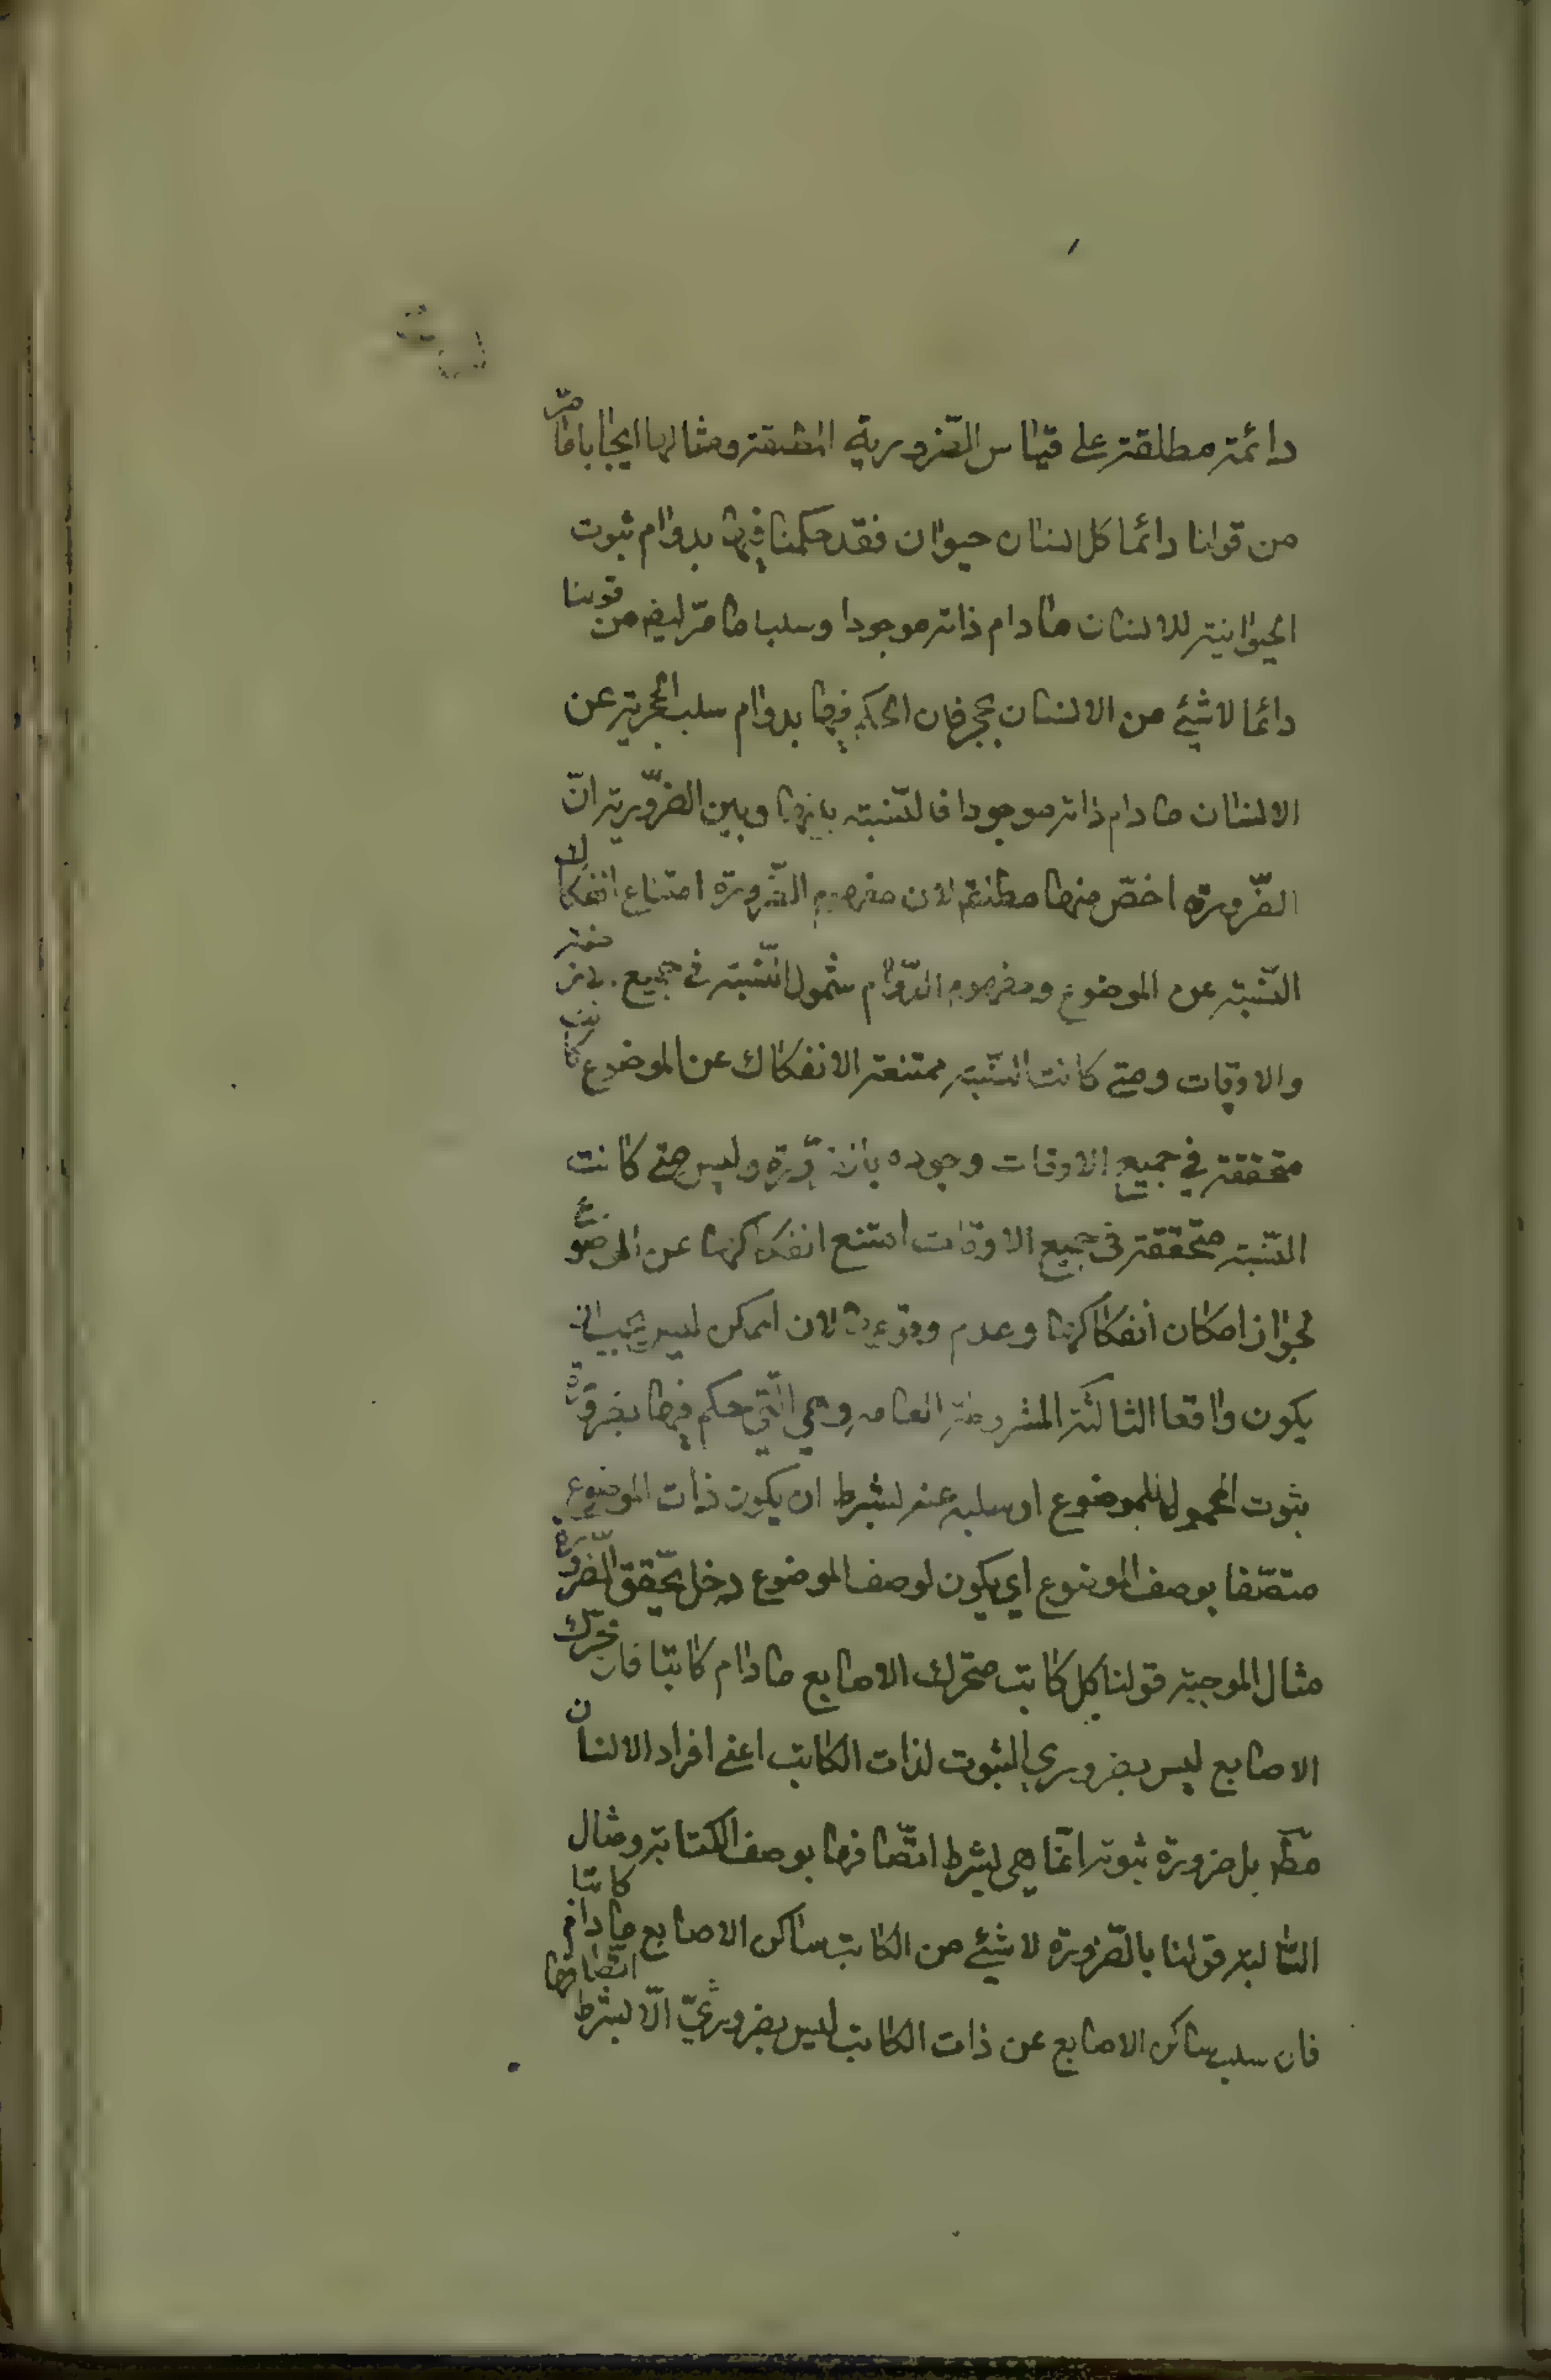 دائمة مطلقة على قياس الضّرورية المطلقة ومثالها ايجابا ما مرّ
من قولنا دائما كل انسان حيوان فقد حكمنا فيها بدوام ثبوت
الحيوانية للانسان ما دام ذاته موجودا وسلبا ما مرّ ايضا من قولنا
دائما لا شيئ من الانسان بحجر فان الحكم فيها بدوام سلب الحجرية عن
الانسان ما دام ذاته موجودا فالنّسبة بينها وبين الضّرورية انّ
الضّرورة اخصّ منها مطلقا لان مفهوم الضّرورة امتناع انفكاك
النّسبة عن الموضوع ومفهوم الدّوام شمول النّسبة في جميع الازمنة
والاوقات ومتى كانت النّسبة ممتنعة الانفكاك عن الموضوع كانت
متحققة في جميع الاوقات وجوده بالضّرورة وليس متى كانت
النّسبة متحققة في جميع الاوقات امتنع انفكاكها عن الموضوع
لجواز امكان انفكاكها وعدم وقوعه لان الممكن ليس يجب ان
يكون واقعا الثالثة المشروطة العامه وهي الّتي حكم فيها بضرورة
ثبوت المحمول للموضوع او سلبه عنه بشرط ان يكون ذات الموضوع
متصّفا بوصف الموضوع اي يكون لوصف الموضوع دخل تحّقق الضّرورة
مثال الموجبة قولنا كل كاتب متحرك الاصابع ما دام كاتبا فان تحرّك
الاصابع ليس بضروري الثبوت لذات الكاتب اعني افراد الانسان
مطّ بل ضرورة ثبوته انّما هي بشرط اتّصافها بوصف الكتابة ومثال
السّالبة قولنا بالضّرورة لا شيئ من الكاتب ساكن الاصابع ما دام كاتبا
فان سلب ساكن الاصابع عن ذات الكاتب ليس بضروريّ الّا بشرط اتّصافها